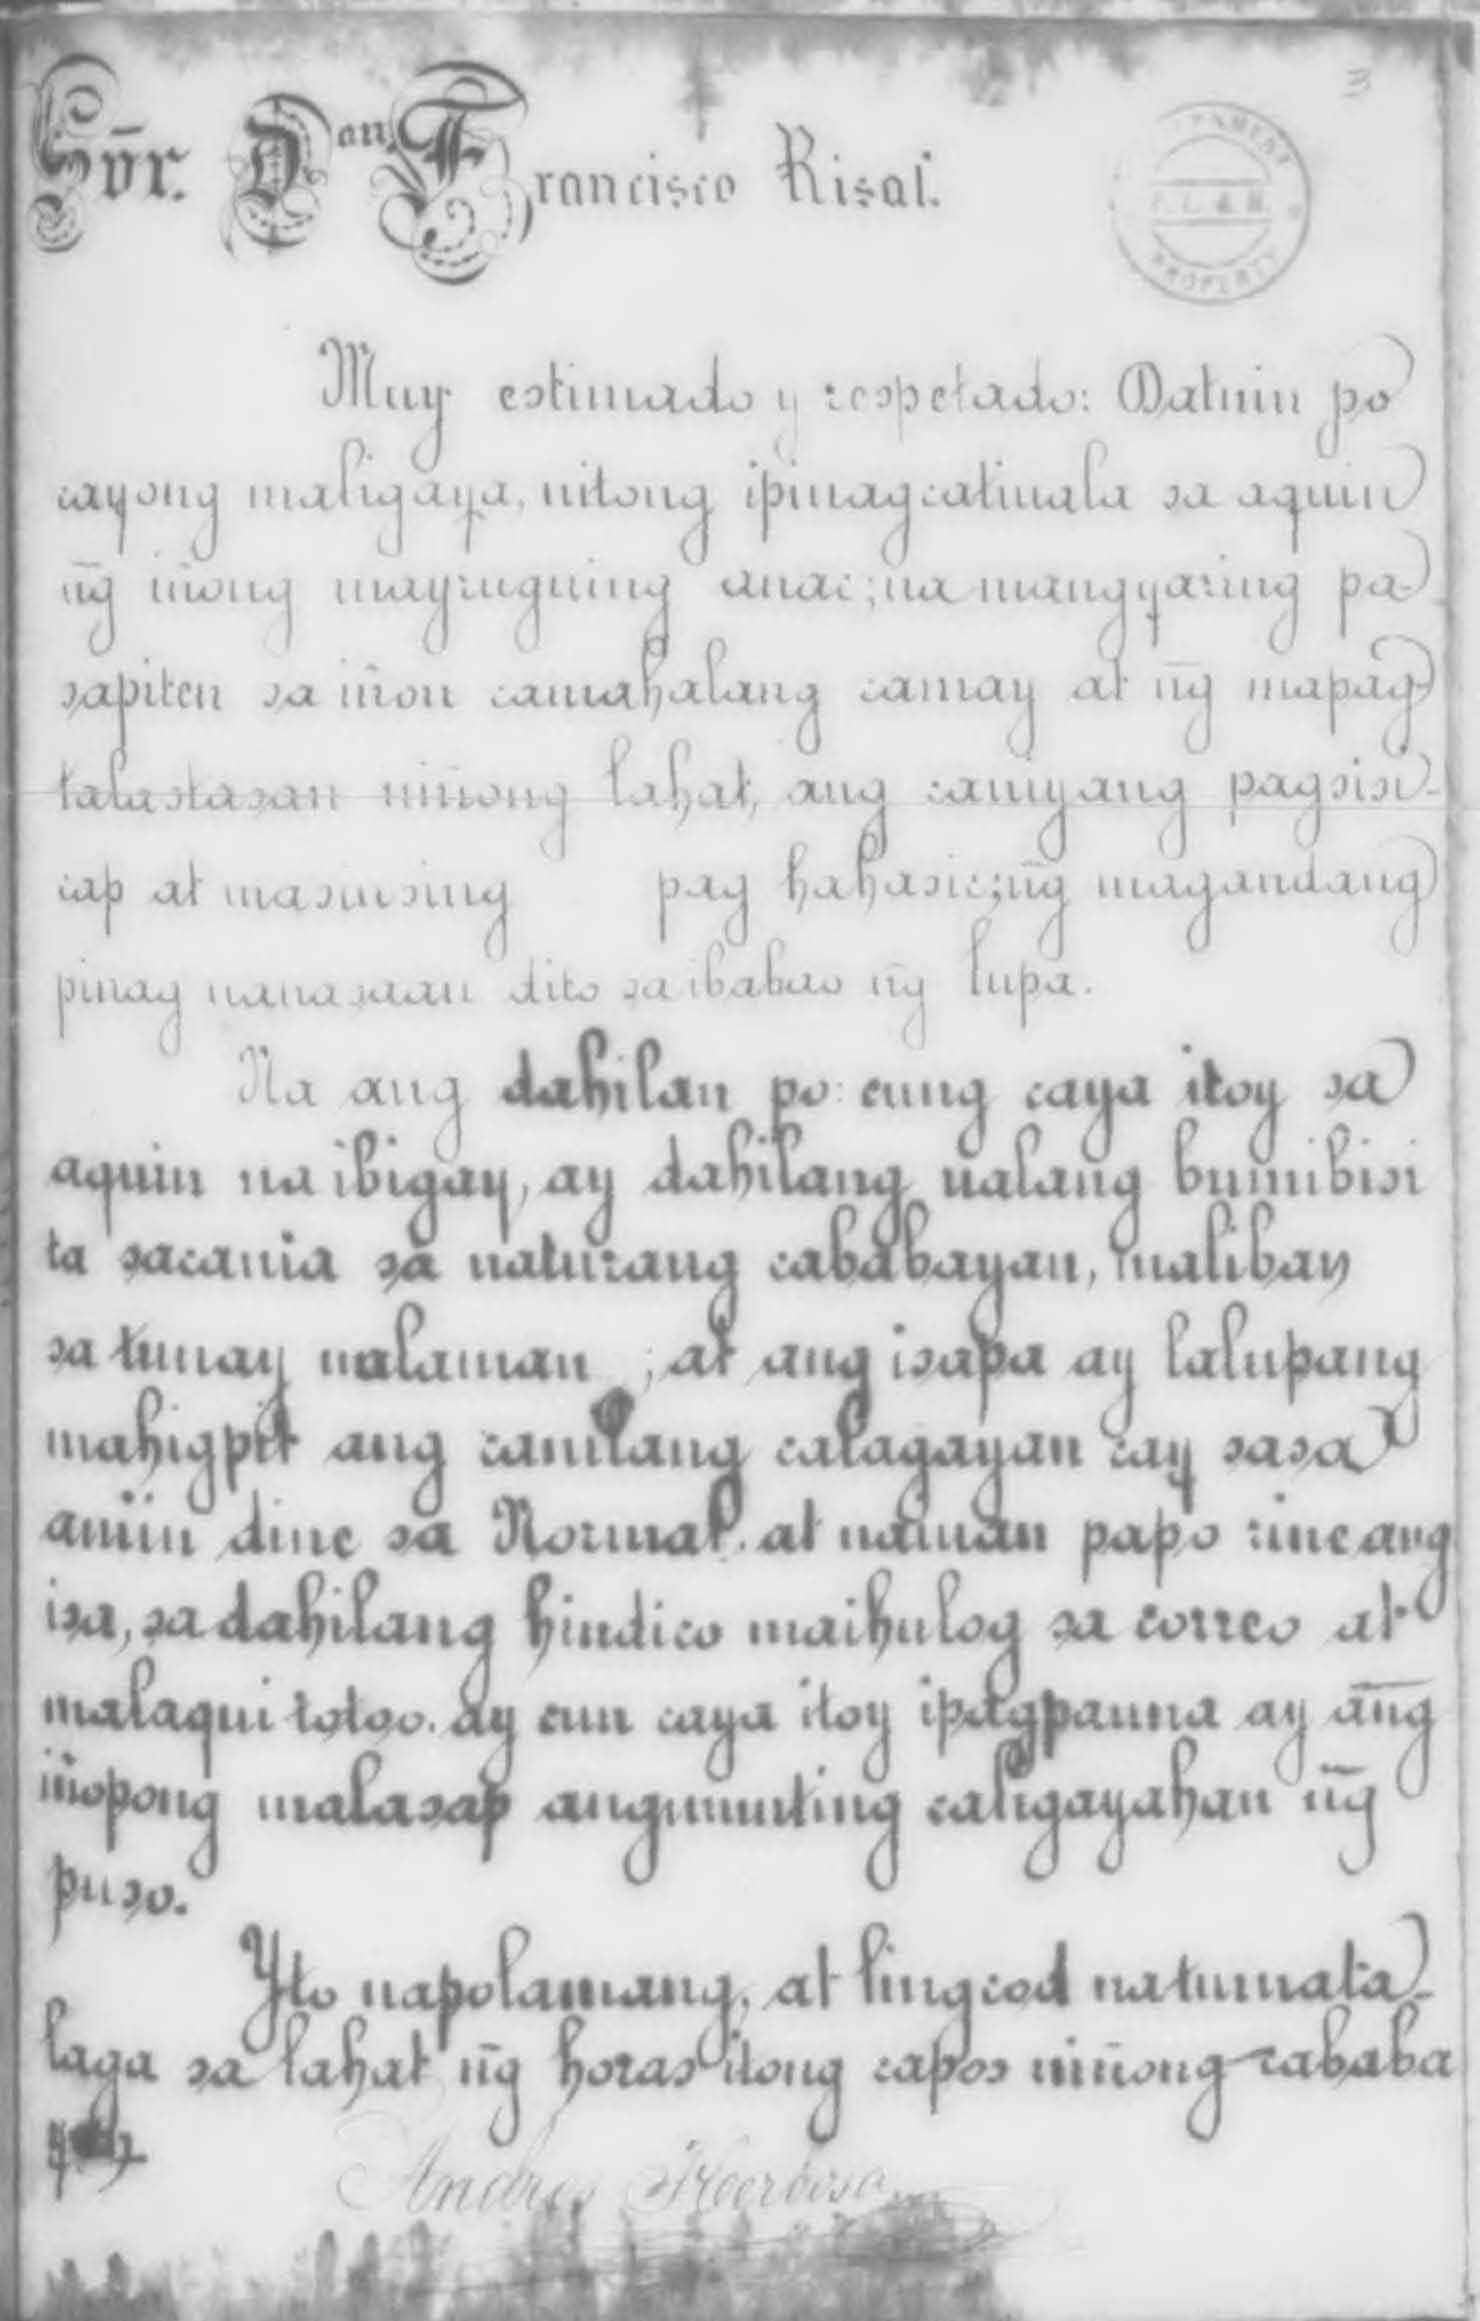 3
Sñr. Don Francisco Risal.
PROPERTY
Muy estimado y respetado: Datnin po
cayong maligaya, nitong ipinagcatiuala sa aquin
n̄g iñong mayruguing anac; na mangyaring pa-
sapiten sa iñon camahalang camay at n̄g mapag-
talastasan niñong lahat, ang caniyang pagsisi-
cap at masinsing pag hahasic; n̄g magandang
pinag nanasaan dito sa ibabao n̄g lupa.
Na ang dahilan po: cung caya itoy sa
aquin na ibigay, ay dahilang ualang bumibisi
ta sacania sa naturang cababayan, maliban
sa tunay malaman ; at ang isapa ay lalupang
mahigpit ang canilang calagayan cay sasa
amin dine sa Normal. at naman papo rine ang
isa, sa dahilang hindico maihulog sa correo at
malaqui totoo. ay cun caya itoy ipagpauna ay an̄g
iñopong malasap angmunting caligayahan n̄g
puso.
Yto napolamang, at lingcod natumata-
laga sa lahat n̄g horas itong capos niñong cababa
Andres Herbosa